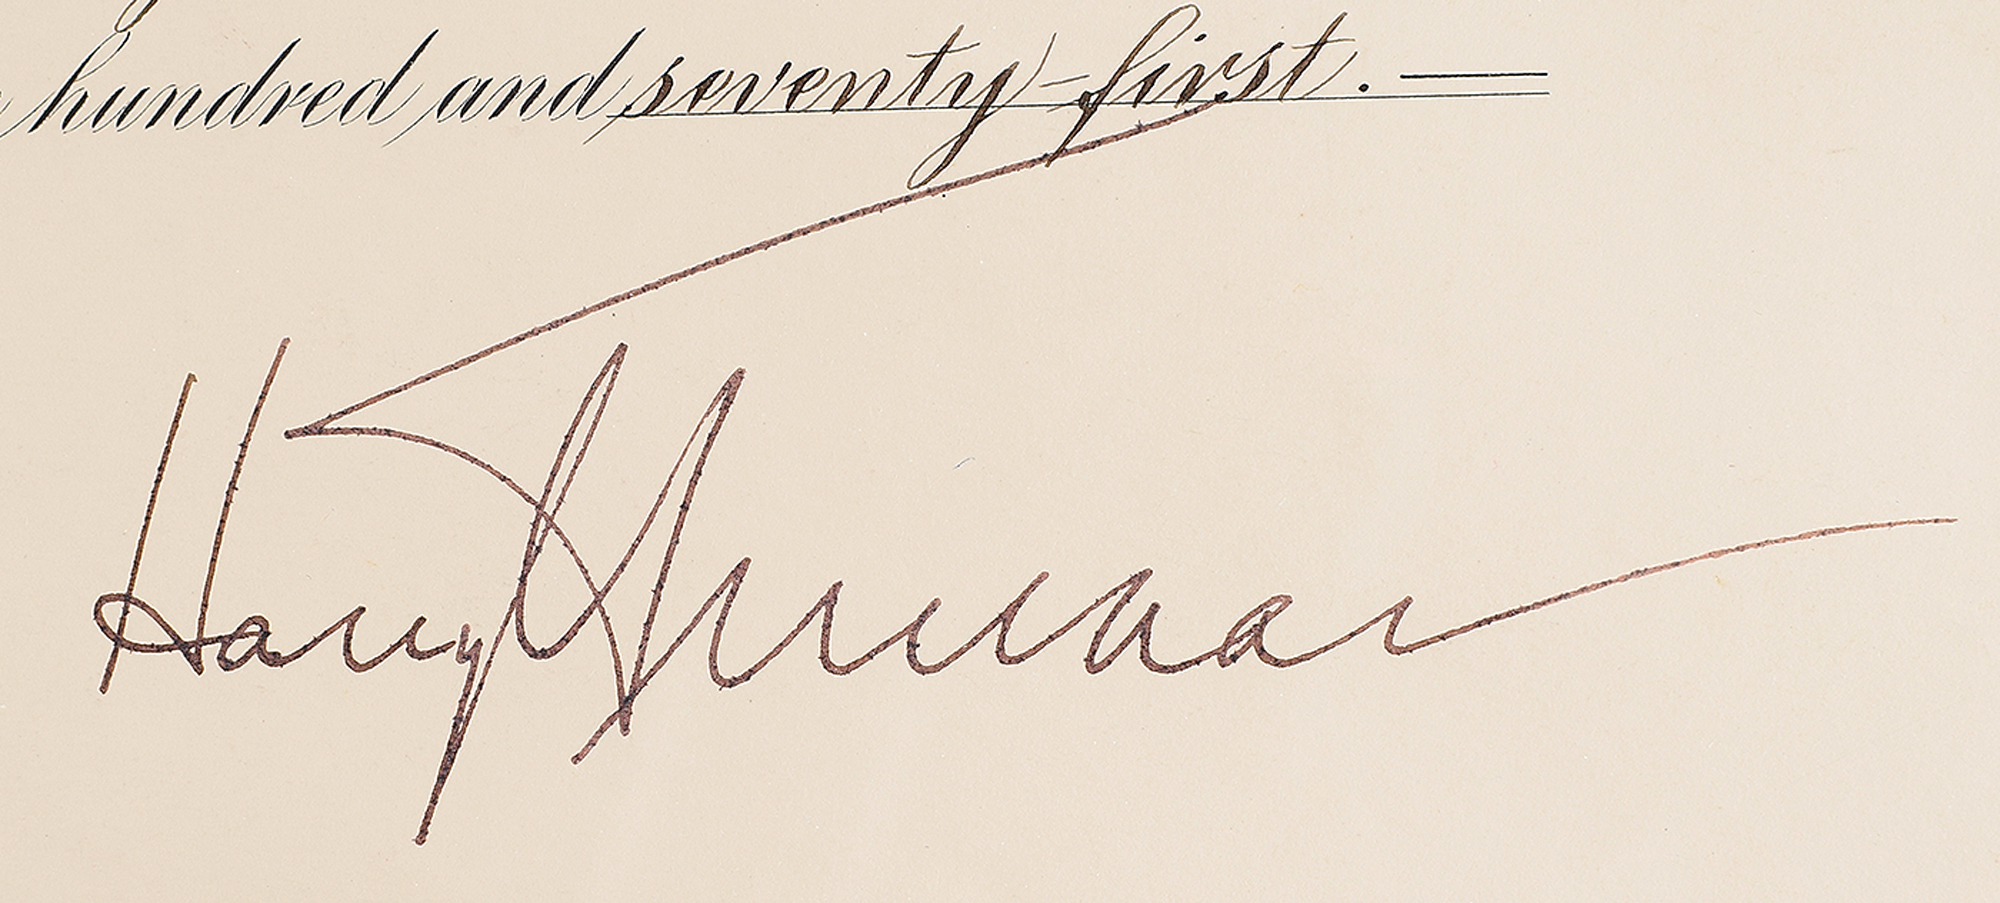 hundred and seventy-first.
Harry S Truman